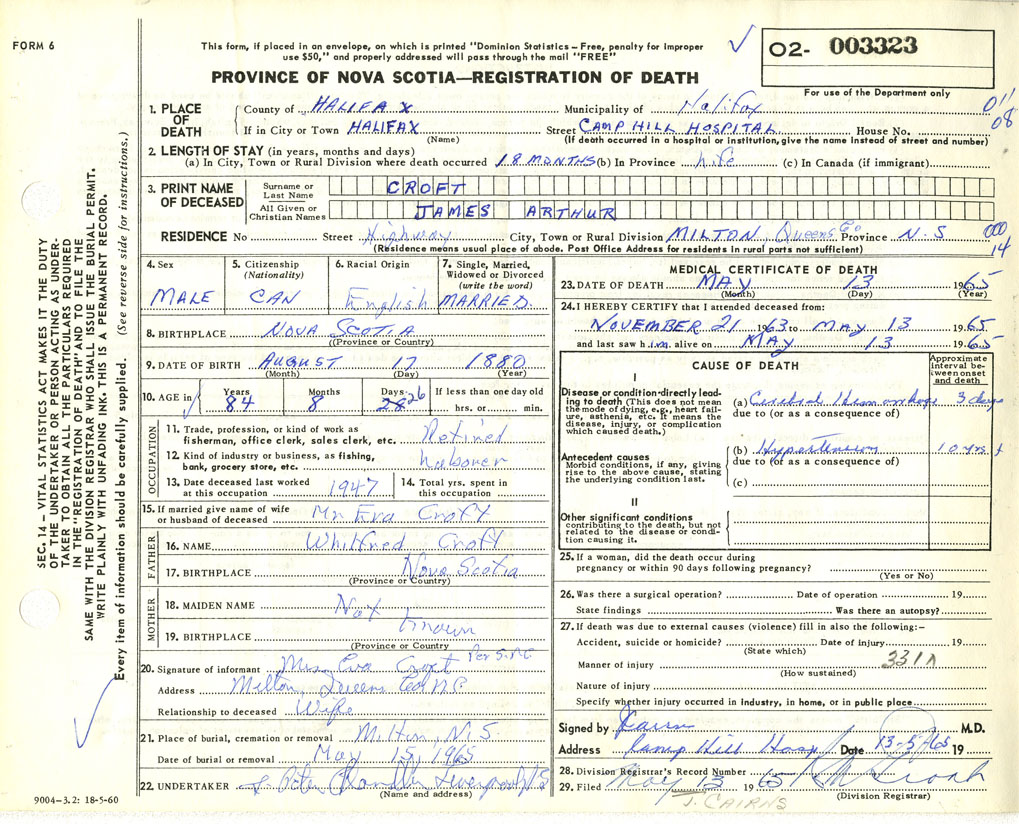 FORM 6
This form, if placed in an envelope, on which is printed "Dominion Statistics – Free, penalty for improper
use $50," and properly addressed will pass through the mail "FREE"
O2- 003323
For use of the Department only
PROVINCE OF NOVA SCOTIA—REGISTRATION OF DEATH
1. PLACE OF DEATH
County of HALIFAX Municipality of Halifax 011
If in City or Town HALIFAX Street CAMP HILL HOSPITAL House No. 08
(Name) (If death occurred in a hospital or institution, give the name instead of street and number)
2. LENGTH OF STAY (in years, months and days)
(a) In City, Town or Rural Division where death occurred 18 MONTHS (b) In Province Life (c) In Canada (if immigrant)
3. PRINT NAME OF DECEASED
Surname or Last Name CROFT
All Given or Christian Names JAMES ARTHUR
RESIDENCE No Street Highway City, Town or Rural Division MILTON, Queens Co Province N.S 000
(Residence means usual place of abode. Post Office Address for residents in rural parts not sufficient) 14
4. Sex MALE
5. Citizenship (Nationality) CAN
6. Racial Origin English
7. Single, Married, Widowed or Divorced (write the word) MARRIED.
8. BIRTHPLACE NOVA SCOTIA
(Province or Country)
9. DATE OF BIRTH AUGUST 17 1880
(Month) (Day) (Year)
10. AGE in Years 84 Months 8 Days 28 26 If less than one day old hrs. or min.
OCCUPATION
11. Trade, profession, or kind of work as fisherman, office clerk, sales clerk, etc. Retired
12. Kind of industry or business, as fishing, bank, grocery store, etc. Labourer
13. Date deceased last worked at this occupation 1947
14. Total yrs. spent in this occupation
15. If married give name of wife or husband of deceased Mrs Eva Croft
FATHER
16. NAME Whitfred Croft
17. BIRTHPLACE Nova Scotia
(Province or Country)
MOTHER
18. MAIDEN NAME Not
19. BIRTHPLACE known
(Province or Country)
20. Signature of informant Mrs Eva Croft Per
Address Milton, Queens Co
Relationship to deceased Wife
21. Place of burial, cremation or removal Milton, N.S
Date of burial or removal May 15, 1965
22. UNDERTAKER
(Name and address)
MEDICAL CERTIFICATE OF DEATH
23. DATE OF DEATH MAY 13 1965
(Month) (Day) (Year)
24. I HEREBY CERTIFY that I attended deceased from:
NOVEMBER 21 1963 to MAY 13 1965
and last saw him alive on MAY 13 1965
CAUSE OF DEATH
Approximate Interval between onset and death
I
Disease or condition directly leading to death (This does not mean the mode of dying, e.g., heart failure, asthenia, etc. It means the disease, injury, or complication which caused death.)
(a) Cerebral Hemorrhage 3 days
due to (or as a consequence of)
Antecedent causes
Morbid conditions, if any, giving rise to the above cause, stating the underlying condition last.
(b) Hypertension 10 yrs +
due to (or as a consequence of)
(c)
II
Other significant conditions
contributing to the death, but not related to the disease or condition causing it.
25. If a woman, did the death occur during
pregnancy or within 90 days following pregnancy?
(Yes or No)
26. Was there a surgical operation? Date of operation 19
State findings Was there an autopsy?
27. If death was due to external causes (violence) fill in also the following:–
Accident, suicide or homicide? Date of injury 19
(State which)
Manner of injury 331
(How sustained)
Nature of injury
Specify whether injury occurred in industry, in home, or in public place
Signed by M.D.
Address Camp Hill Hosp Date 13-5-65 19
28. Division Registrar's Record Number
29. Filed May 13 1965
(Division Registrar)
J. CAIRNS
SEC. 14 – VITAL STATISTICS ACT MAKES IT THE DUTY
OF THE UNDERTAKER OR PERSON ACTING AS UNDER-
TAKER TO OBTAIN ALL THE PARTICULARS REQUIRED
IN THE "REGISTRATION OF DEATH" AND TO FILE THE
SAME WITH THE DIVISION REGISTRAR WHO SHALL ISSUE THE BURIAL PERMIT.
WRITE PLAINLY WITH UNFADING INK. THIS IS A PERMANENT RECORD.
Every item of information should be carefully supplied. (See reverse side for instructions.)
9004-3.2: 18-5-60